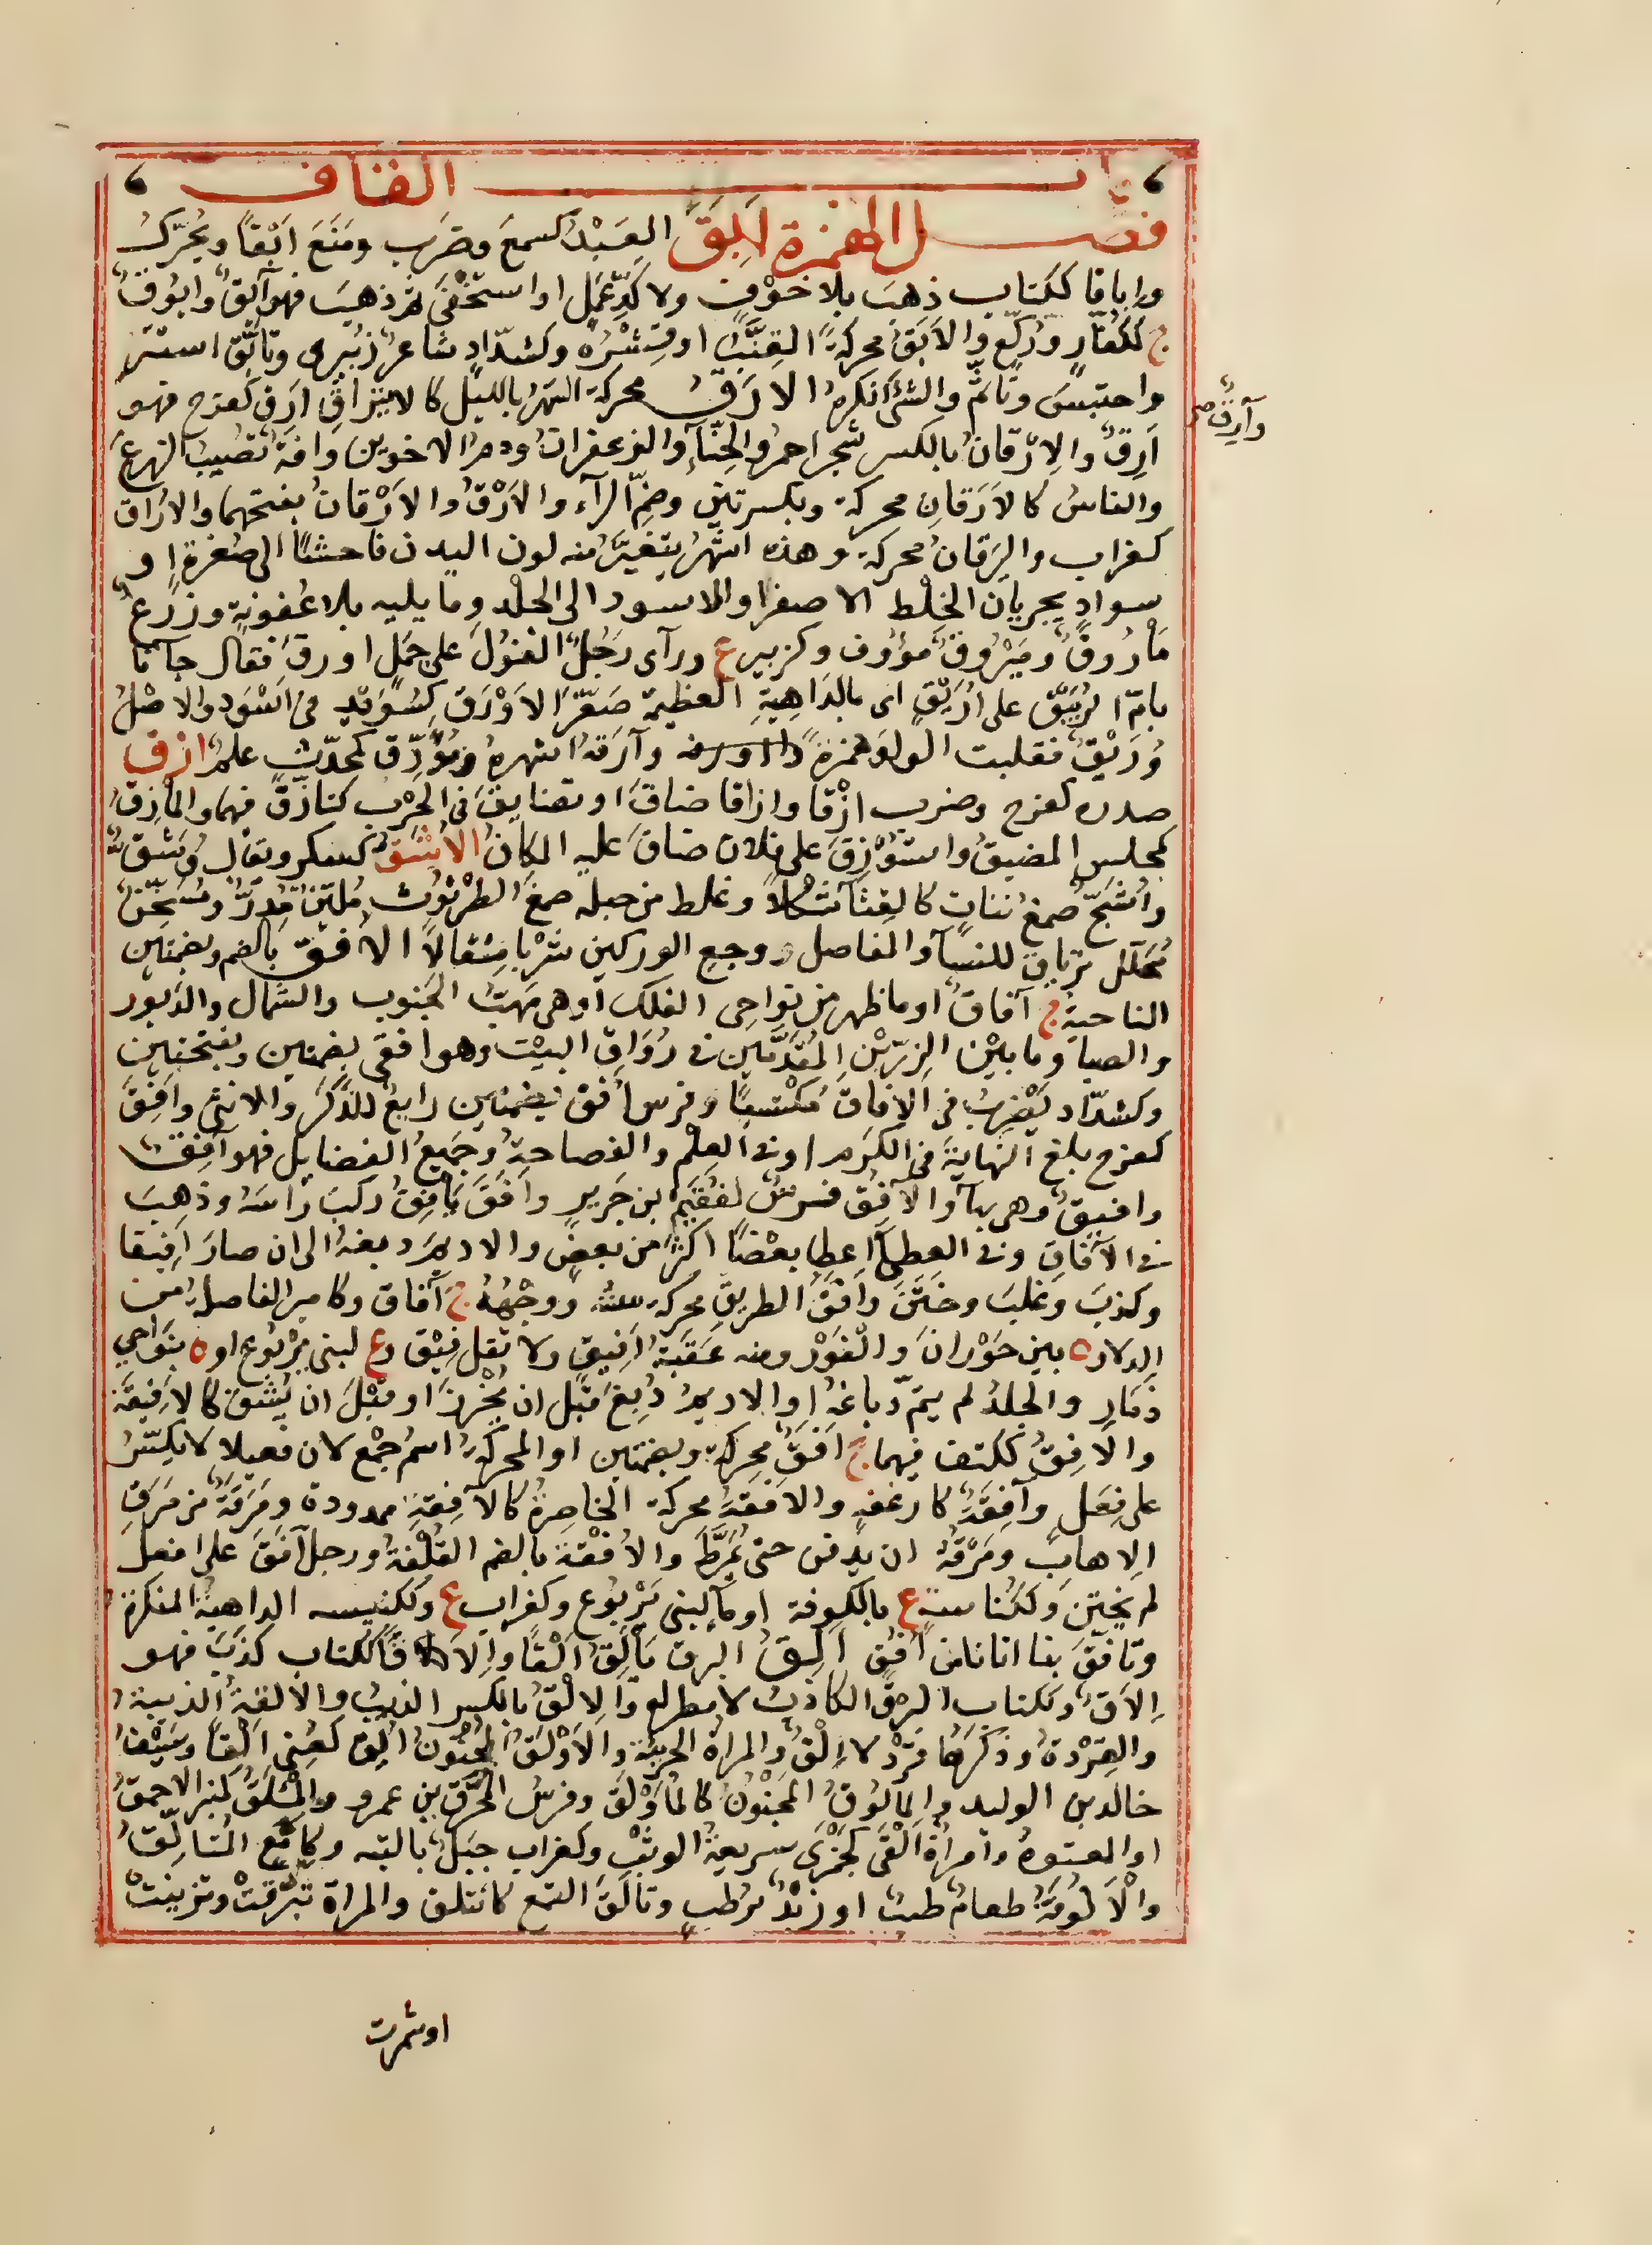 باب القاف
فصل الهمزة اَبِقَ العَبْدُ كسمعَ وضَرَب ومَنَعَ اَبْقًا ويُحَرَّكُ
واِباقا ككِتاب ذهبَ بلا خَوْفٍ ولا كَدِّ عَمَلٍ او استَخْفَى ثم ذهبَ فهو آبِقٌ وابُوقٌ
ج ككفّارٍ ورُكّعٍ والاَبَقُ محركةً القِنَّبُ او قِشْرُه وكشدّادٍ شاعرٌ زُبيرى وتأبّق استتر
واحتبسَ وتأثّم والشئَ انكرهُ الارَقُ محركة السَهَرُ بالليل كالايتراقِ ارِقَ كفرح فهو
اَرِقٌ والاِرْقانُ بالكسر شجر احمرُ والحِنّآءُ والزعفرانُ ودم الاخوين وآفة تُصيبُ الزرعَ
والناسَ كالاَرَقانِ محركة وبكسرتين وضمِّ الرآء والاَرْقُ والاَرْقانُ بفتحهما والاُراق
كغراب واليَرَقانُ محركة وهذه اشهرُ يتغيّرُ منه لون البدن فاحشًا الى صُفرةٍ او
سوادٍ بجريان الخِلْط الاصفر او الاسود الى الجلد وما يليه بلا عُفونةٍ وزرعٌ
مأرُوقٌ ومَيْرُوقٌ مؤوف وكزبير ع ورآى رَجُلٌ الغُولَ على جَمَلٍ اورقَ فقال جآنا
بامّ الرُبَيْق على اُرَيْقٍ اى بالدَاهِيةِ العظيمة صَغَّرَ الاَوْرَقَ كسُوَيْدٍ فى اَسْوَد والاصْلُ
وُرَيْقٌ فقلبت الواو همزةً وآرَقهُ اسْهرهُ ومُؤَرِّق كمحدّثٍ علمٌ ازِقَ
صدره كفرح وضرب ازْقا وازَقا ضاقَ او تضايقَ فى الحَرْب كتأزّقَ فيهما والمأزِقُ
كمجلسٍ المضيقُ واستُؤْزِقَ على فلان ضاقَ عليه المكانُ الاُشَّقُ كسكر ويقال وُشَّقٌ
واُشَّجٌ صمغُ نباتٍ كالقِثّآءِ شكلاً وغلط من جعله صمغَ الطرثوث مُليّنٌ مُدِرٌّ ومُسَخّنٌ
مُحَلّل ترياق للنسآ والمفاصل ووجع الوركين شُرْبا مِثْقالاً الاُفْقُ بالضم وبضمتين
الناحيةُ ج آفاقٌ او ما ظهر من نواحى الفلك او هى مَهَبُّ الجنوب والشمال والدَبور
والصبا وما بيْن الزِرّيْن المُقَدَّمَين فى رُوَاق البيْت وهو افقى بضمتين وبفتحتين
وكشدّاد يَضْرِبُ فى الآفاق مُكْتسِبًا وفرس اُفُق بضمتين رايعٌ للذَّكَر والانثى وافِقَ
كفرح بلغ النهايةَ فى الكَرَم او فى العِلْم والفصاحةِ وجَميعُ الفضايل فهو آفِقٌ
وافيقٌ وهى بهآ والاُفُق فرسٌ لفُقَيْم بن جَريرٍ واَفَقَ يَأفِقُ ركبَ رَاسَهُ وذهبَ
فى الآفاق وفى العطآ اعطى بعْضًا اكثرَ من بعضٍ والاديمَ دبغهُ الى ان صارَ اَفيقا
وكذبَ وغلبَ وخَتَنَ واَفَقُ الطريق محركة سننه ووجْهُهُ ج آفاق وكاميرٍ الفاضلةُ من
الدلاء ة بين حَوْرانَ والْغَوْر ومنه عَقَبَةُ اَفِيق ولا تقل فِيْق وع لبنى يَرْبُوع او ة بنَواحى
ذمَارِ والجلدُ لم يتمّ دباغهُ او الاديمُ دُبِغَ قَبْلَ ان يُخْرزَ او قبْلَ ان يُشقّ كالاَفيقة
والاَفِق ككتف فيهما ج اَفَقٌ محركة وبضمتين او المحركةُ اسم جَمْع لان فعيلا لا يُكسَّرُ
على فَعَلٍ وآفِقَةٌ كارغفه والاَفَقَةُ محركة الخاصِرةُ كالآفِقَةِ ممدودة ومَرَقَةٌ من مَرَقِ
الاِهابِ ومَرْقُهُ ان يدفن حتى يُمَرَّطَ والاُفْقة بالضم القُلْفَةُ ورجل آفَقُ على افعل
لم يختتن وككُناسةٍ ع بالكوفة او مآءٌ لبنى يَرْبُوع وكغراب ع وككنيسه الداهيةُ المنكرة
وتأفَّقَ بنا اتانا من اُفُقٍ اَلَقَ البرق يَألِقُ اَلْقًا واِلاقًا ككتاب كذَبَ فهو
اِلاقٌ وككتاب البرقُ الكاذبُ لا مطر له والاِلْقُ بالكسر الذيبُ والالقةُ الذيبة
والقِرْدةُ وذكَرُها قِرْدٌ لا اِلْقٌ والمراة الجريئة والاَوْلَقُ الجُنُونُ اُلِقَ كعُنِى اَلْقًا وسَيْفُ
خالد بن الوليد والمألُوقُ المجنُونُ كالمُأَوْلَق وفرسُ المُحَرِّق بن عمرو والمِئْلَقُ كمنبر الاحمقُ
او المعتوهُ وامراة اَلَقَى كجَمَزَى سريعةُ الوثْبِ وكغراب جبَلٌ بالتيه وكإمّع المُتَالِّقُ
والاَلُوقَةُ طعام طيبٌ او زُبْدٌ برُطَبٍ وتألّقَ البرق لمع كائتلق والمراة تبرّقتْ وتزيّنتْ
وآرِقٌ صح
او شمرت